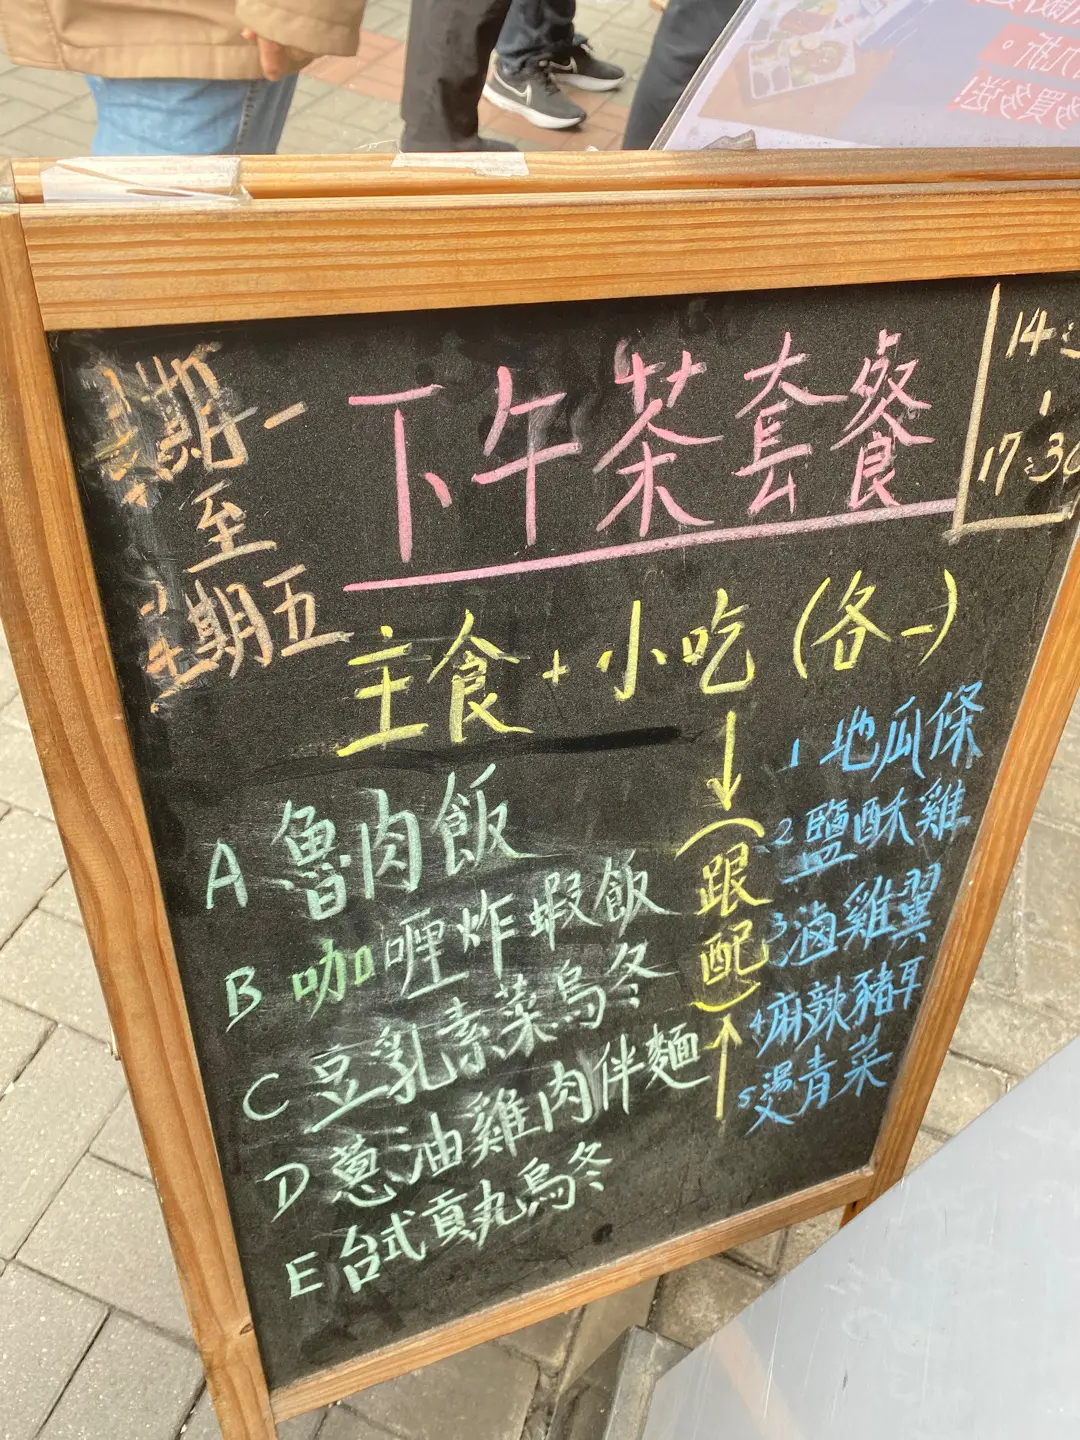 星期一
至
星期五
下午茶套餐
14:
17:30
主食+小吃(各一)
A 魯肉飯
B 咖喱炸蝦飯
C 豆乳素菜烏冬
D 蔥油雞肉伴麵
E 台式貢丸烏冬
(跟配)
1 地瓜條
2 鹽酥雞
3 滷雞翼
4 麻辣豬耳
5 燙青菜
多買多送!